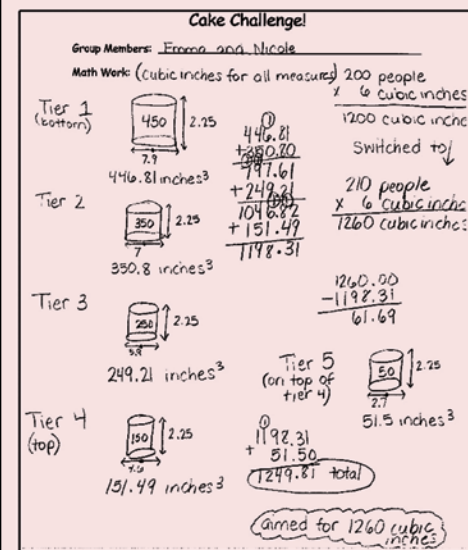 Cake Challenge!
Group Members: Emma and Nicole
Math Work: (cubic inches for all measures)
200 people
x 6 cubic inches
1200 cubic inc
Switched to
210 people
x 6 cubic inc
1260 cubic inc
Tier 1
(bottom)
450
2.25
7.9
446.81 inches³
1
446.81
+350.80
797.61
+249.21
1046.82
+151.49
1198.31
Tier 2
350
2.25
7
350.8 inches³
1260.00
-1198.31
61.69
Tier 3
250
2.25
249.21 inches³
Tier 5
(on top of
tier 4)
50
2.25
2.7
51.5 inches³
Tier 4
(top)
150
2.25
151.49 inches³
1
1198.31
+ 51.50
1249.81 total
aimed for 1260 cubic
inches